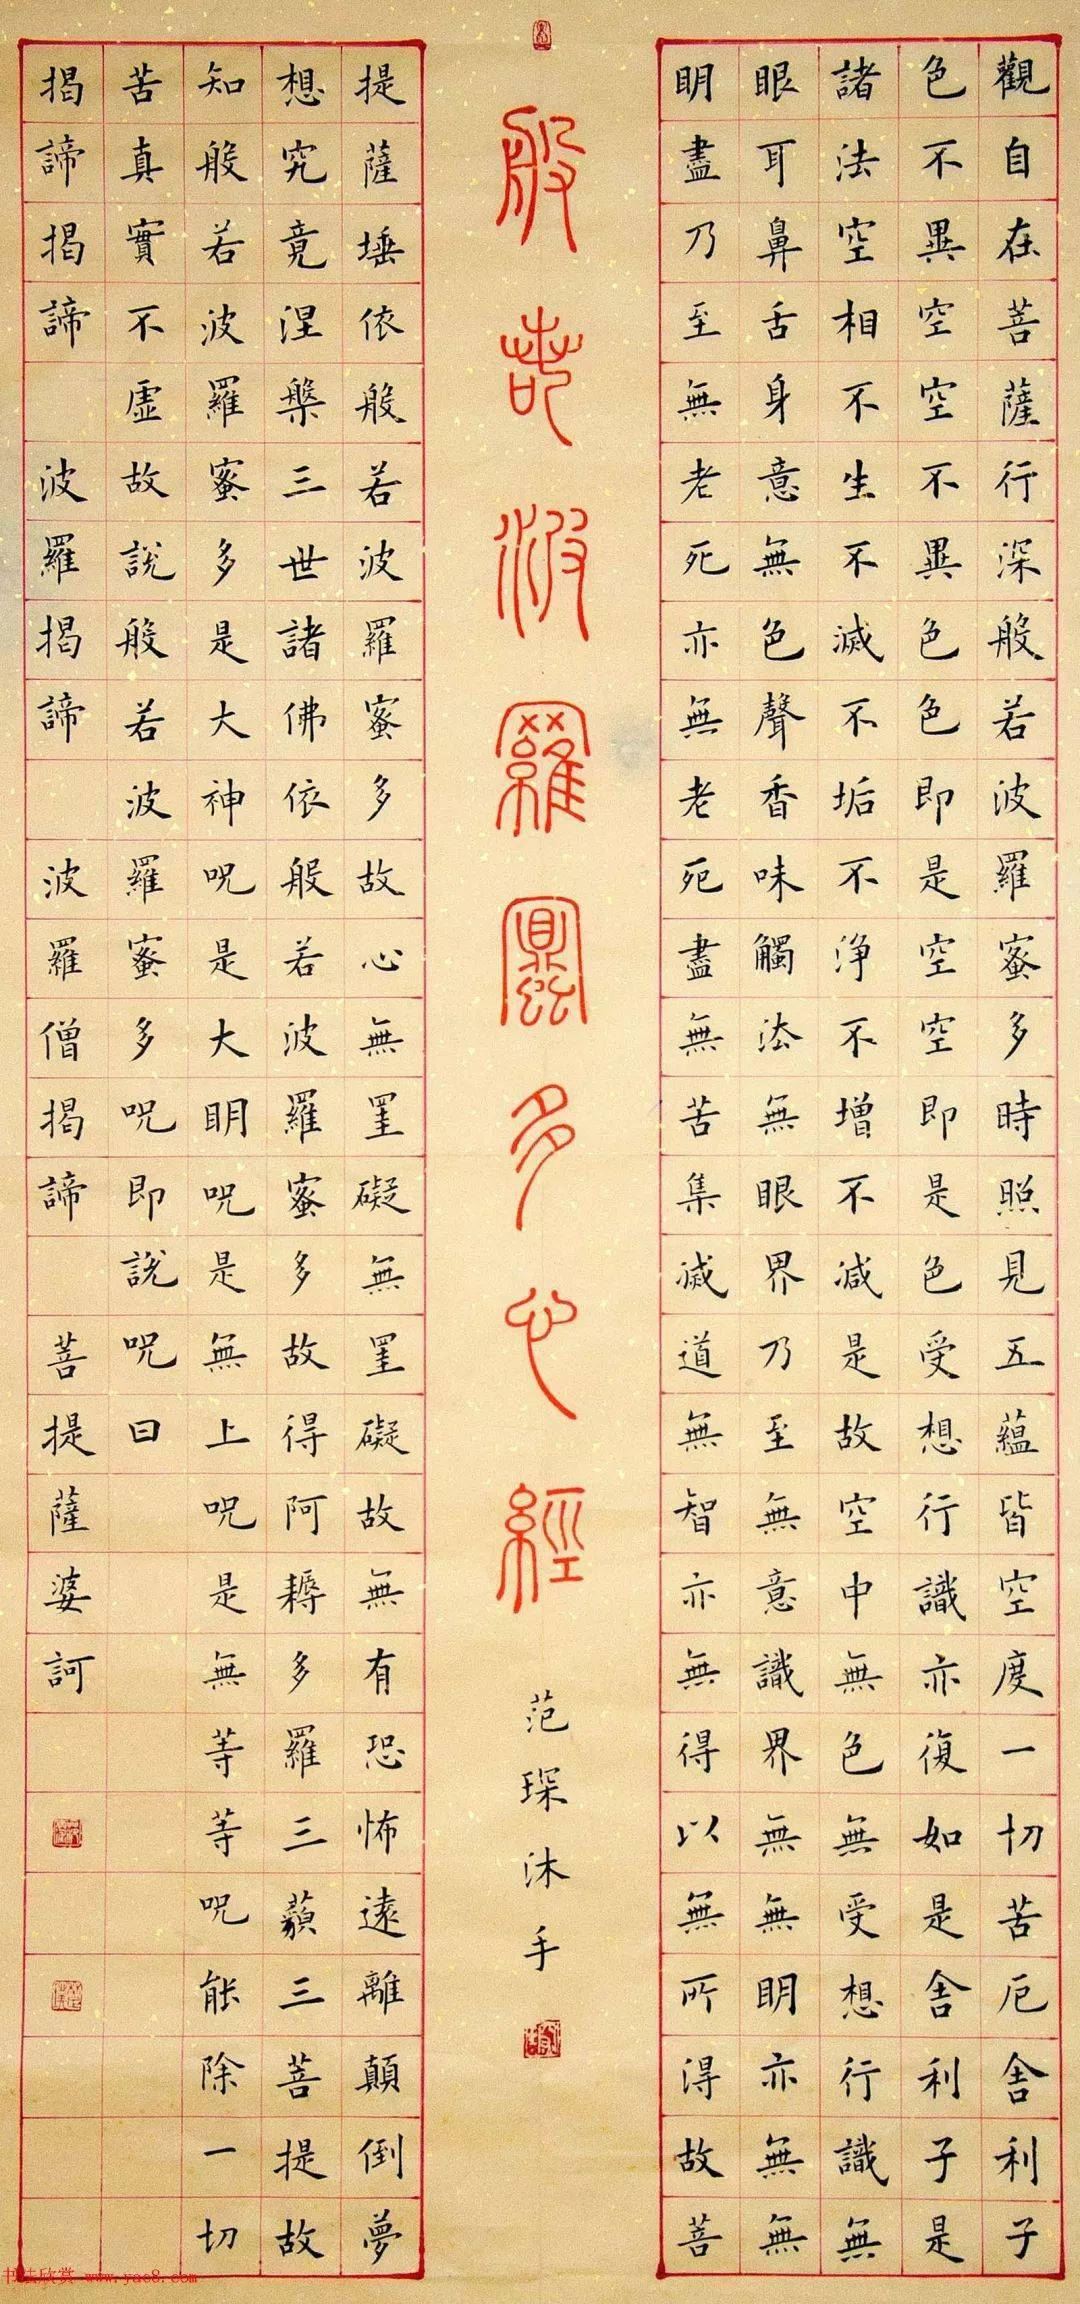 觀自在菩薩行深般若波羅蜜多時照見五蘊皆空度一切苦厄舍利子
色不異空空不異色色即是空空即是色受想行識亦復如是舍利子是
諸法空相不生不滅不垢不浄不增不減是故空中無色無受想行識無
眼耳鼻舌身意無色聲香味觸法無眼界乃至無意識界無無眀亦無無
眀盡乃至無老死亦無老死盡無苦集滅道無智亦無得以無所得故菩
般若波羅蜜多心經
范琛沐手
提薩埵依般若波羅蜜多故心無罣礙無罣礙故無有恐怖遠離顛倒夢
想究竟涅槃三世諸佛依般若波羅蜜多故得阿耨多羅三藐三菩提故
知般若波羅蜜多是大神呪是大眀呪是無上呪是無等等呪能除一切
苦真實不虛故說般若波羅蜜多呪即說呪曰
揭諦揭諦 波羅揭諦 波羅僧揭諦 菩提薩婆訶
书法欣赏 www.yac8.com